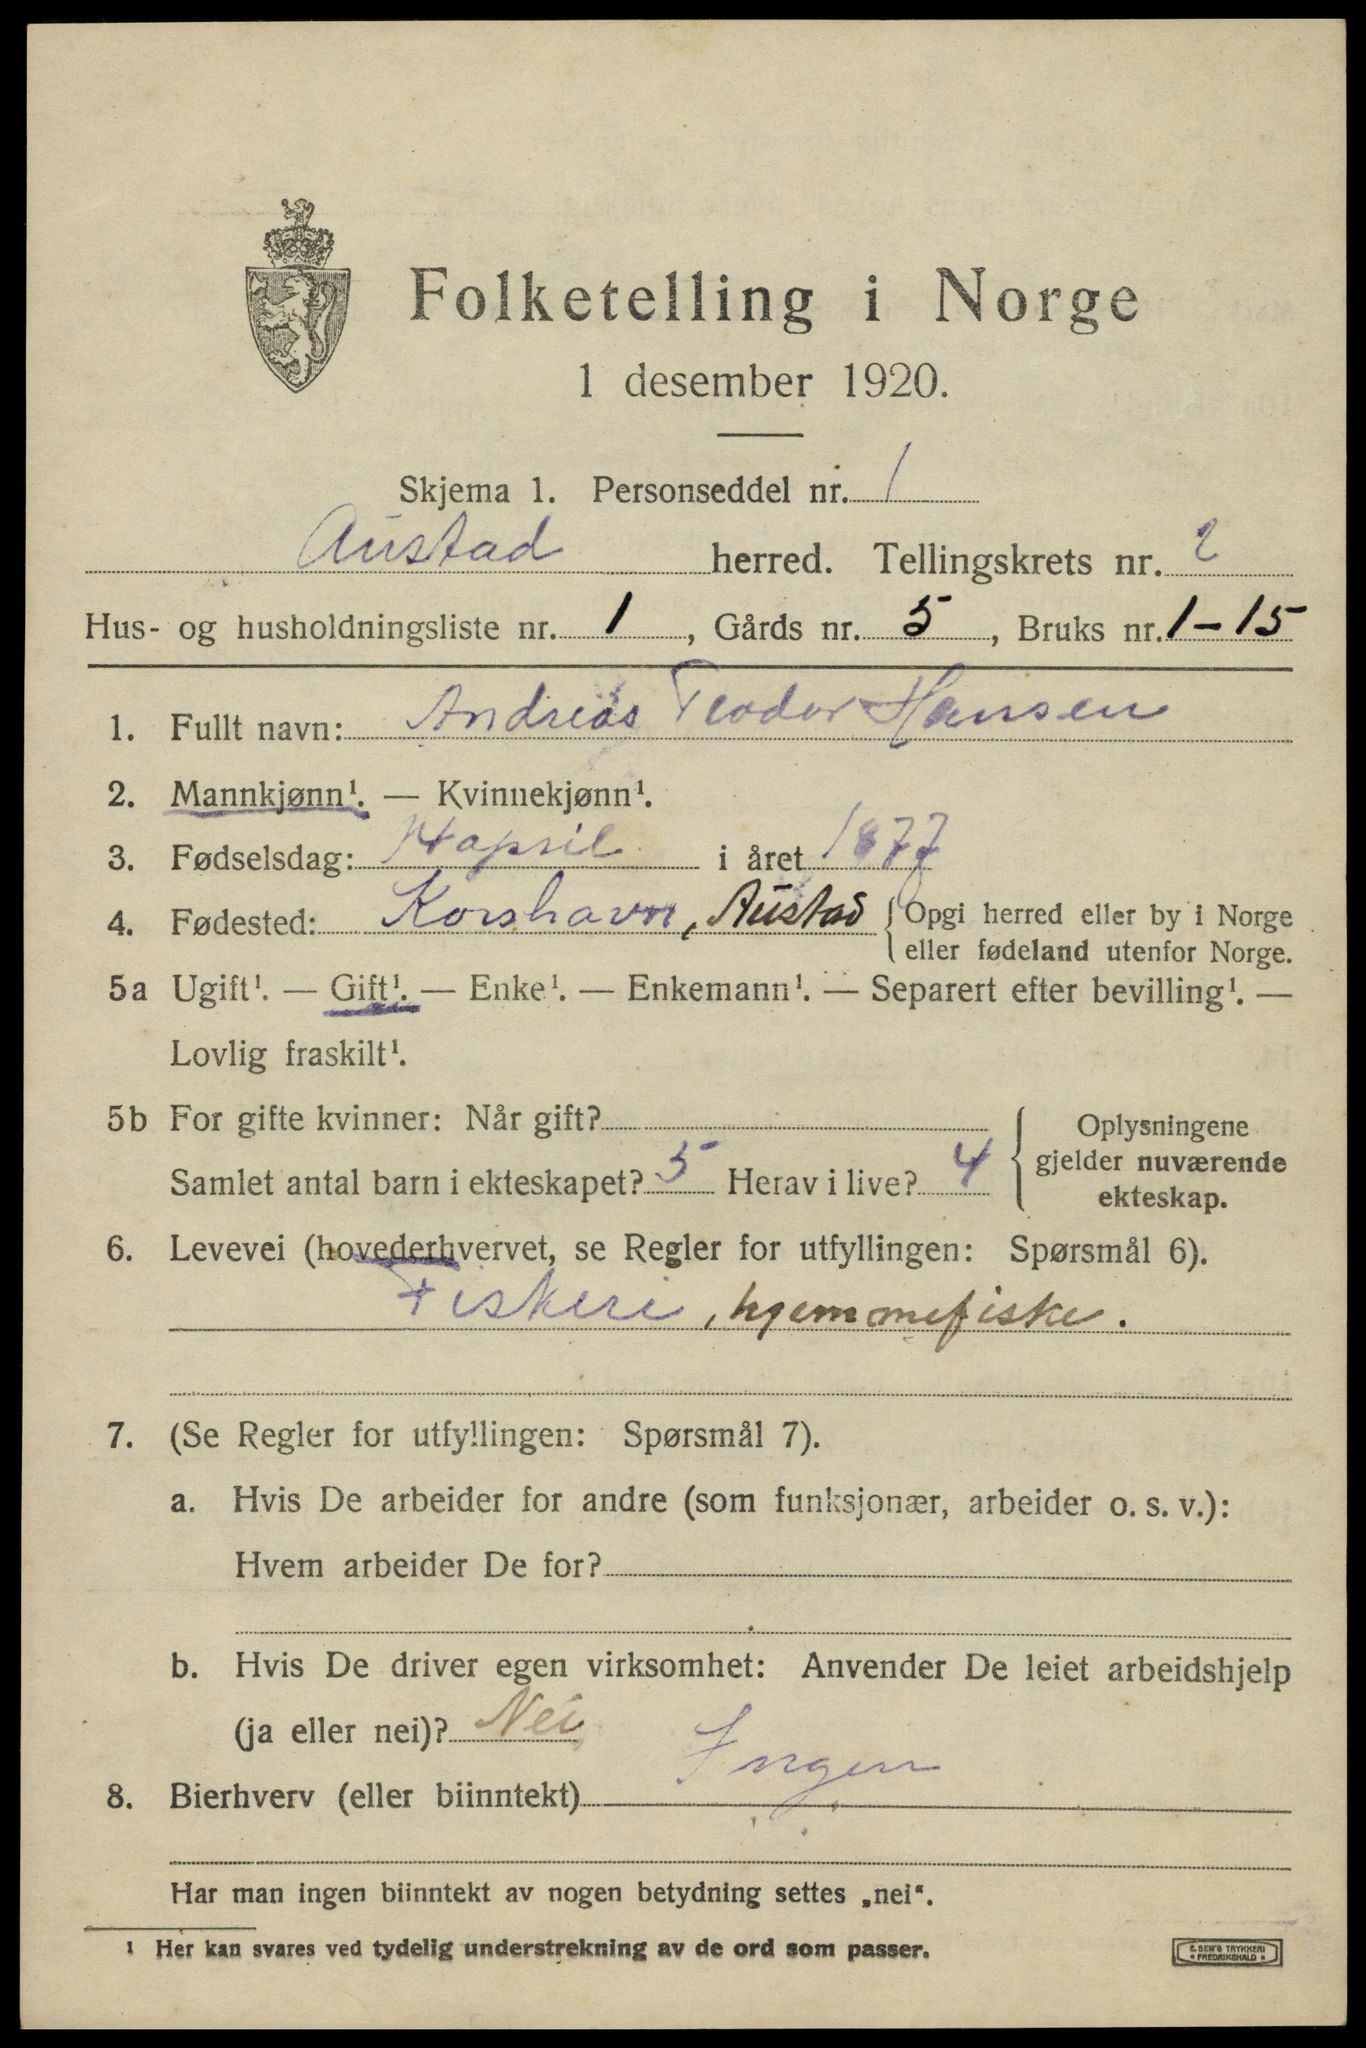 Folketelling i Norge
1 desember 1920.
Skjema 1. Personseddel nr. 1
Austad herred. Tellingskrets nr. 2
Hus- og husholdningsliste nr. 1, Gårds nr. 5, Bruks nr. 1-15
1. Fullt navn: Andreas Teodor Hansen
2. Mannkjønn¹. — Kvinnekjønn¹.
3. Fødselsdag: 14 april i året 1877
4. Fødested: Korshavn, Austad { Opgi herred eller by i Norge
eller fødeland utenfor Norge.
5a Ugift¹. — Gift¹. — Enke¹. — Enkemann¹. — Separert efter bevilling¹. —
Lovlig fraskilt¹.
5b For gifte kvinner: Når gift?
Samlet antal barn i ekteskapet? 5 Herav i live? 4
Oplysningene
gjelder nuværende
ekteskap.
6. Levevei (hovederhvervet, se Regler for utfyllingen: Spørsmål 6).
Fiskeri, hjemmefiske.
7. (Se Regler for utfyllingen: Spørsmål 7).
a. Hvis De arbeider for andre (som funksjonær, arbeider o. s. v.):
Hvem arbeider De for?
b. Hvis De driver egen virksomhet: Anvender De leiet arbeidshjelp
(ja eller nei)? Nei
8. Bierhverv (eller biinntekt) Ingen
Har man ingen biinntekt av nogen betydning settes „nei“.
¹ Her kan svares ved tydelig understrekning av de ord som passer.
E. SEM'S TRYKKERI
* FREDRIKSHALD *